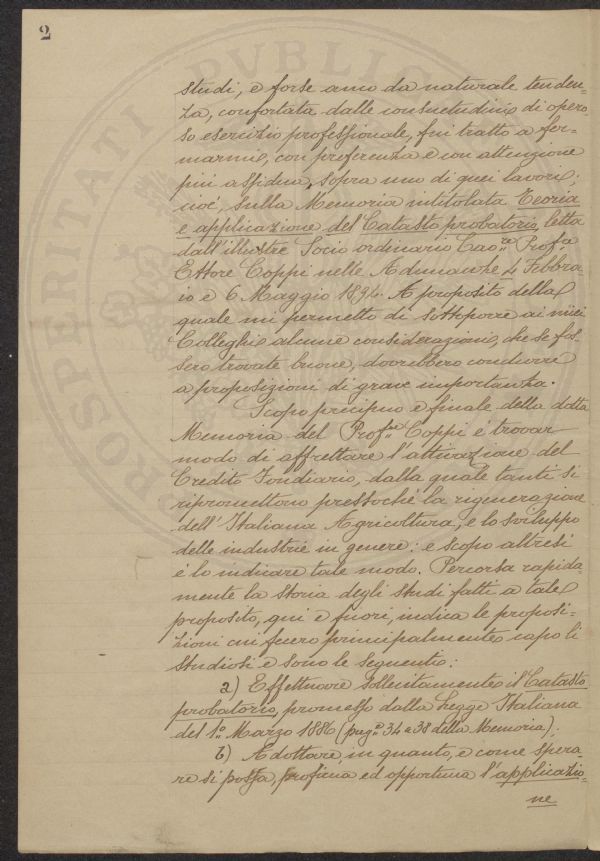 2
studi, e forse anco da naturale tenden-
za, confortata dalle consuetudini di opero
so esercizio professionale, fui tratto a fer-
marmi, con preferenza e con attenzione
più assidua, sopra uno di quei lavori;
cioè, sulla Memoria intitolata Teoria
e applicazione del Catasto probatorio, letta
dall'illustre Socio ordinario Cav.re Prof.re
Ettore Coppi nelle Adunanze 4 Febbra-
io e 6 Maggio 1894. A proposito della
quale mi permetto di sottoporre ai miei
Colleghi alcune considerazioni, che se fos-
sero trovate buone, dovrebbero condurre
a proposizioni di grave importanza.
Scopo precipuo e finale della dotta
Memoria del Prof.re Coppi è trovar
modo di affrettare l'attivazione del
Credito Fondiario, dalla quale tanti si
ripromettono pressochè la rigenerazione
dell'Italiana Agricoltura, e lo sviluppo
delle industrie in genere: e scopo altresì
è lo indicare tale modo. Percorsa rapida-
mente la storia degli studi fatti a tale
proposito, qui e fuori, indica le proposi-
zioni cui fecero principalmente capo li
studiosi e sono le seguenti:
a) Effettuare sollecitamente il Catasto
probatorio, promesso dalla Legge Italiana
del 1º Marzo 1886 (pag.e 34 a 38 della Memoria);
b) Adottare, in quanto, e come spera-
re si possa, proficua ed opportuna l'applicazio-
ne
PROSPERITATI PVBLIC